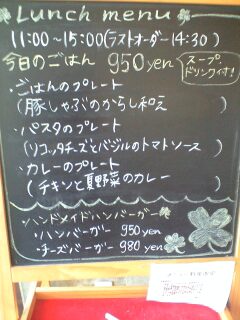 Lunch menu
11:00～15:00(ラストオーダー14:30)
今日のごはん 950yen
スープ
ドリンク付き!
・ごはんのプレート
(豚しゃぶのからし和え)
・パスタのプレート
(リコッタチーズとバジルのトマトソース)
・カレーのプレート
(チキンと夏野菜のカレー)
ハンドメイドハンバーガー
・ハンバーガー 950yen
・チーズバーガー 980yen